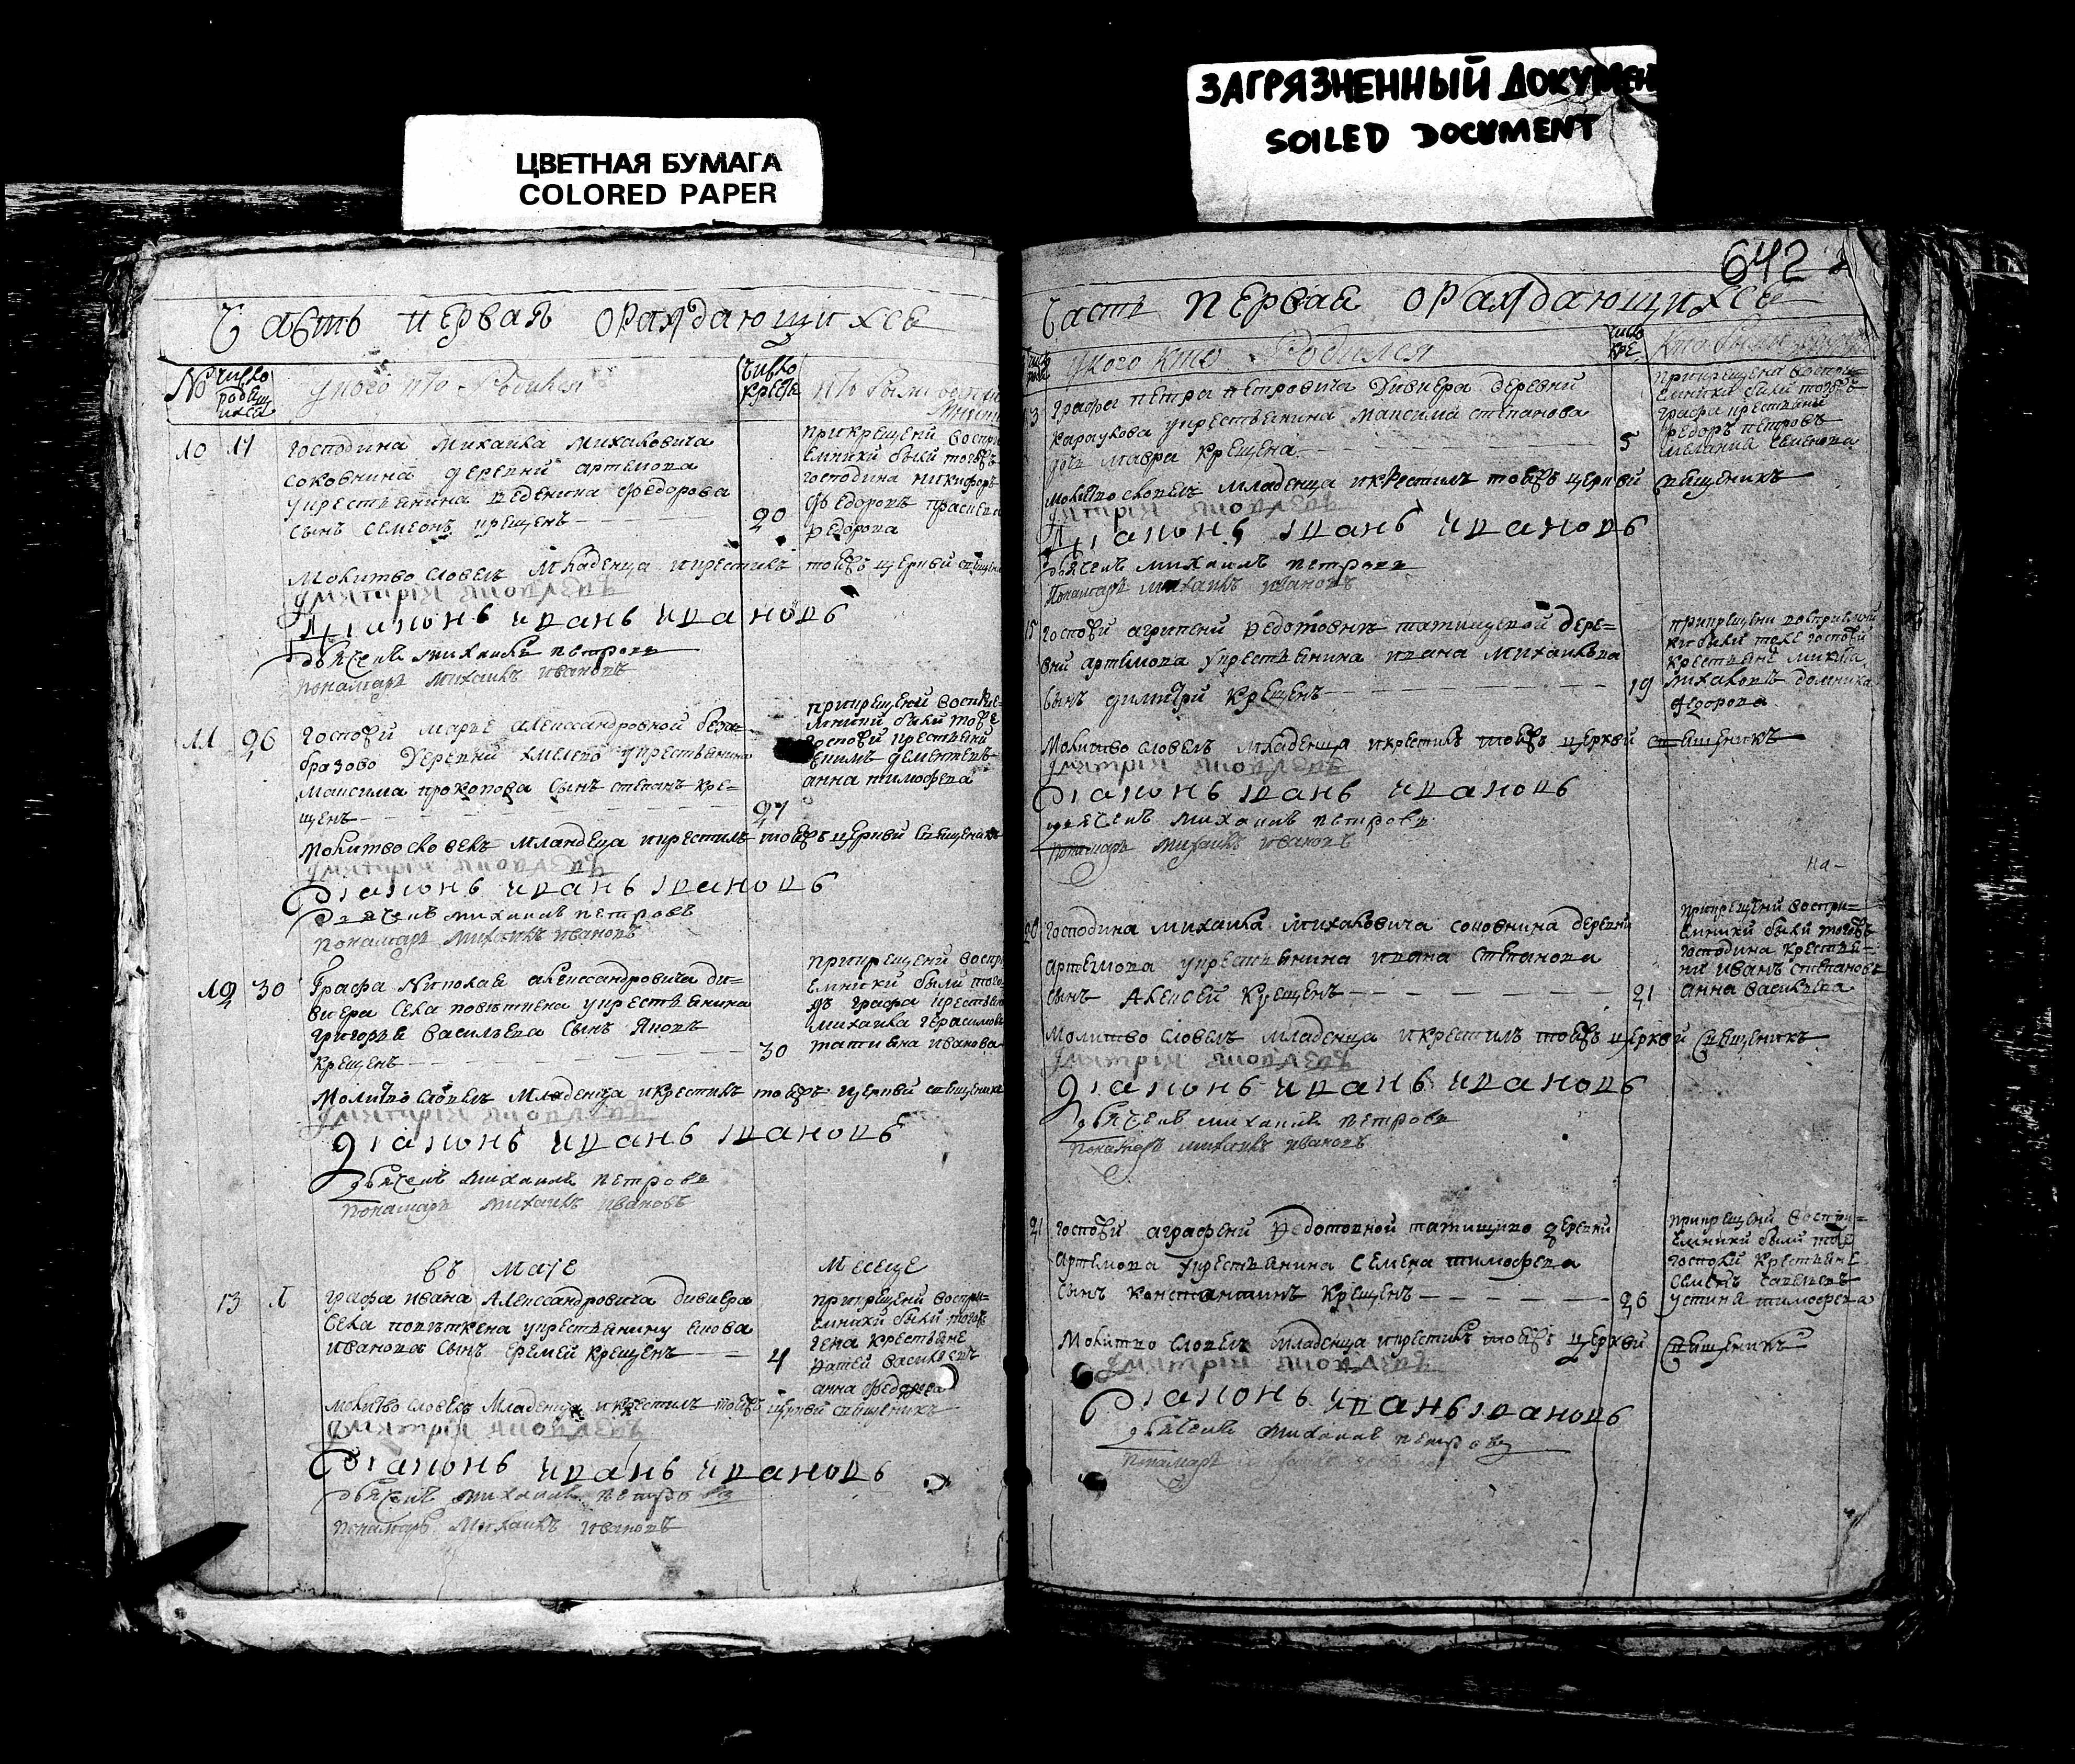 ЦВЕТНАЯ БУМАГА
COLORED PAPER
ЗАГРЯЗНЕННЫЙ ДОКУМЕН
SOILED DOCUMENT
Часть первая ораждающихсе
№ число родящихсе
у кого кто родился
число креще
10 17
господина михаила михаловича
соковнина деревни артемова
укрестьянина феденина федорова
сынъ семеонъ крещенъ
20
прикрещени воспри
емники были тогожъ
господина никифоръ
федоровъ
федорова
молитвословелъ младенца икрестилъ тоейжъ церкви свщеник
дмитрій яковлевъ
диаконъ иванъ ивановъ
дьячекъ михаилъ петровъ
понамарь михаилъ ивановъ
11 26
госпожи марье александровной безо=
бразово деревни хмелево укрестьянина
максима прокопова сынъ степанъ кре=
щенъ
27
прикрещени восприе=
мники были тоеже
госпожи крестьяни
дементевъ
анна тимофева
молитвословелъ младенца икрестилъ тоейжъ церкви свщеникъ
дмитрій яковлевъ
диаконъ иванъ ивановъ
дьячекъ михаилъ петровъ
понамарь михаилъ ивановъ
12 30
Графа николая александровича ди=
виера села повъткена укрестьянина
григорья васильева сынъ яковъ
крещенъ
30
прикрещени воспри
емники были того
жъ графа крестьяни
михаила герасимовъ
татиана иванова
молитвословелъ младенца икрестилъ тоейжъ церкви свщеникъ
дмитрій яковлевъ
диаконъ иванъ ивановъ
дьячекъ михаилъ петровъ
понамарь михаилъ ивановъ
въ маіе месеце
13
графа ивана александровича дивиера
села повъткена укрестьянину
иванова сынъ еремей крещенъ
4
прикрещени воспри=
емники были тогожъ
села крестьяне
фатей васильевъ
анна федорова
молитвословелъ младенца икрестилъ тоейжъ церкви свщеникъ
дмитрій яковлевъ
диаконъ иванъ ивановъ
дьячекъ михаилъ петровъ
понамарь михаилъ ивановъ
642
Часть первая ораждающихсе
укого кто родился
число кре
кто были
3
графа петра петровича дивиера деревни
караулова укрестьянина максима степанова
дочь мавра крещена
5
прикрещени воспри=
емники были тогожъ
графа крестьяни
федоръ петровъ
мелания семенова
молитвословелъ младенца икрестилъ тоейжъ церкви свщеникъ
дмитрій яковлевъ
диаконъ иванъ ивановъ
дьячекъ михаилъ петровъ
понамарь михаилъ ивановъ
15
госпожи агрипени федотовне татищевой дере=
вни артемова укрестьянина ивана михаилова
сынъ димитри крещенъ
19
прикрещени восприемни
ки были тоже госпожи
крестьяне
михаловъ домника
федорова
молитвословелъ младенца икрестилъ тоейжъ церкви свщеникъ
дмитрій яковлевъ
диаконъ иванъ ивановъ
дьячекъ михаилъ петровъ
понамарь михаилъ ивановъ
на-
20
господина михаила михаловича соковнина деревни
артемова укрестьянина ивана степанова
сынъ алексей крещенъ
21
прикрещени воспри=
емники были тогожъ
господина крестья=
ни иванъ степановъ
анна васильева
молитвословелъ младенца икрестилъ тоейжъ церкви свщеникъ
дмитрій яковлевъ
диаконъ иванъ ивановъ
дьячекъ михаилъ петровъ
понамарь михаилъ ивановъ
21
госпожи аграфени федотовной татищиво деревни
артемова укрестьянина семена тимофева
сынъ константинъ крещенъ
26
прикрещени воспри=
емники были тоже
госпожи крестьяне
семенъ савельевъ
устиня тимофева
молитвословелъ младенца икрестилъ тоейжъ церкви свщеникъ
дмитрій яковлевъ
диаконъ иванъ ивановъ
дьячекъ михаилъ петровъ
понамарь